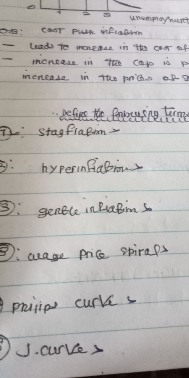 unemployment
cost push inflation
- Leads to increase in the cost of
- increase in the cap is p
increase in the prices of g
Define the following terms
1: stagflation
2): hyperinflation
3: gentle inflation
5): wage price spirals
philips curve
J. curve